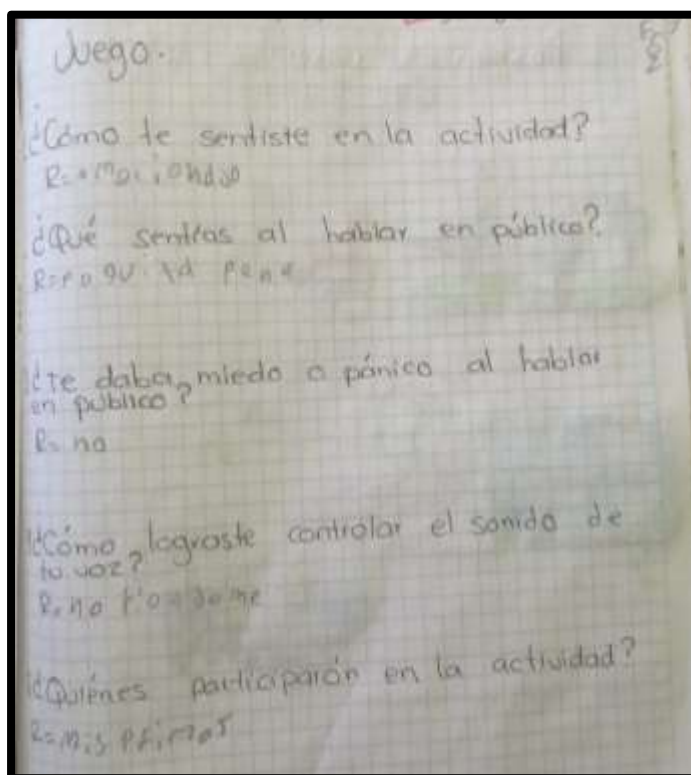 Juego.
¿Cómo te sentiste en la actividad?
R= emocionado
¿Qué sentías al hablar en público?
R= poquita pena
¿te daba miedo o pánico al hablar
en público?
R= no
¿Cómo lograste controlar el sonido de
tu voz?
R= no
¿Quiénes participarón en la actividad?
R= mis primos